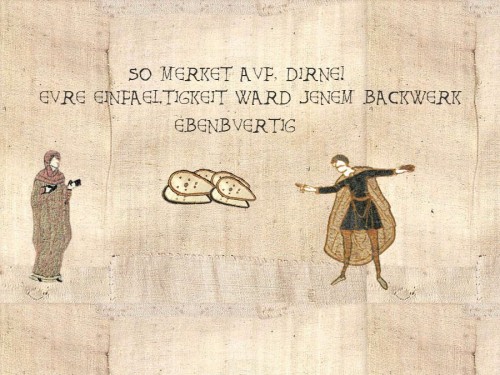 SO MERKET AVF, DIRNE!
EVRE EINFAELTIGKEIT WARD JENEM BACKWERK
EBENBVERTIG